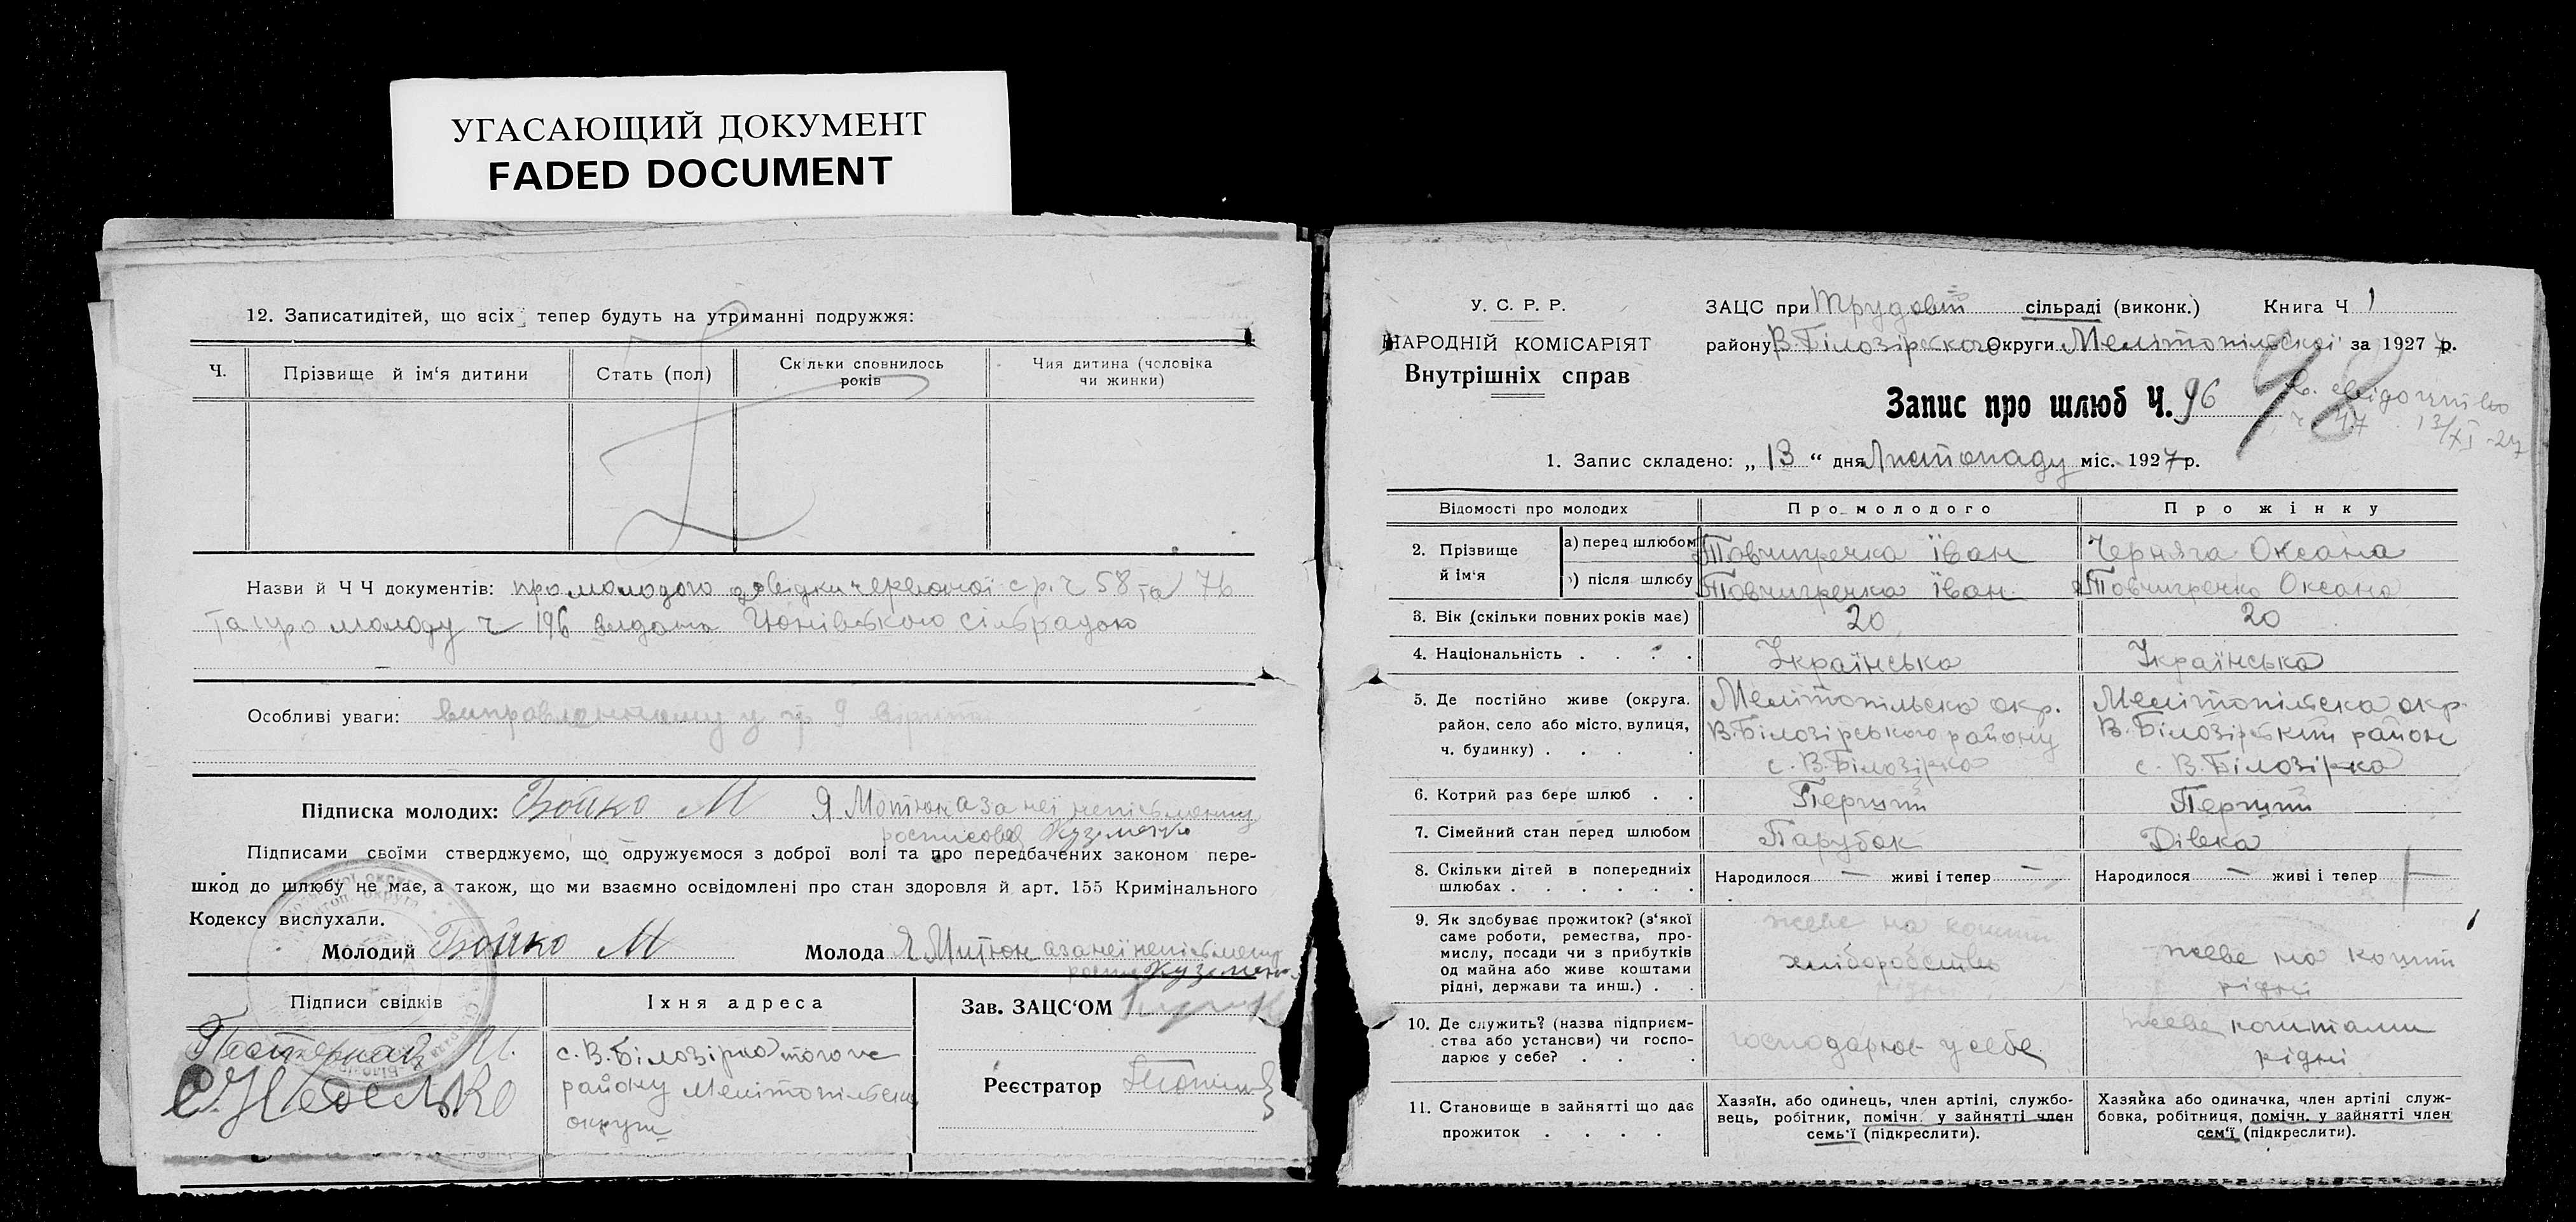 УГАСАЮЩИЙ ДОКУМЕНТ
FADED DOCUMENT
12. Записатидітей, що всіх тепер будуть на утриманні подружжя:
Ч.
Прізвище й ім‘я дитини
Стать (пол)
Скільки сповнилось
років
Чия дитина (чоловіка
чи жинки)
Назви й Ч Ч документів: про молодого довідки червоної с.р. ч 58 та 76
та про молоду ч 196 видана сільрадою
Особливі уваги: у
Підписка молодих: Бойко М Я Мотюк а за неї неписьменну
росписався Кузьменко
Підписами своїми стверджуємо, що одружуємося з доброї волі та про передбачених законом пере-
шкод до шлюбу не має, а також, що ми взаємно освідомлені про стан здоровля й арт. 155 Кримінального
Кодексу вислухали.
Молодий Бойко М Молода Я Митюк а за неї неписьмену
Кузьменко
Підписи свідків
Їхня адреса
Зав. ЗАЦС‘ОМ
с. В. Білозірка того ж
району Мелітопільської
округи
Реєстратор
С. Неделько
У. С. Р. Р.
НАРОДНІЙ КОМІСАРІЯТ
Внутрішніх справ
ЗАЦС при Трудовій сільраді (виконк.) Книга Ч 1
району В. Білозірського Округи Мелітопільської за 1927 р.
Запис про шлюб Ч. 96
98
свідоцтво
ч. 47 13/XI-27
1. Запис складено: „ 13 “ дня Листопаду міс. 1927 р.
Відомості про молодих
Про молодого
Про жінку
2. Прізвище й ім‘я
а) перед шлюбом
Товчигречка Іван
Черняга Оксана
б) після шлюбу
Товчигречка Іван
Товчигречка Оксана
3. Вік (скільки повних років має)
20
20
4. Національність
Українська
Українська
5. Де постійно живе (округа.
район, село або місто, вулиця,
ч. будинку)
Мелітопільска окр.
В. Білозірського району
с. В. Білозірка
Мелітопільска окр.
В. Білозірський район
с. В. Білозірка
6. Котрий раз бере шлюб
Перший
Перший
7. Сімейний стан перед шлюбом
Парубок
Дівка
8. Скільки дітей в попередніх
шлюбах
Народилося — живі і тепер —
Народилося — живі і тепер —
9. Як здобуває прожиток? (з‘якої
саме роботи, ремества, про-
мислу, посади чи з прибутків
од майна або живе коштами
рідні, держави та инш.)
живе на кошти
хліборобство
рідні
живе на кошти
рідні
10. Де служить? (назва підприєм-
ства або установи) чи госпо-
дарює у себе?
господарює у себе
живе коштами
рідні
11. Становище в зайнятті що дає
прожиток
Хазяїн, або одинець, член артілі, службо-
вець, робітник, помічн. у зайнятті член
семь‘ї (підкреслити).
Хазяйка або одиначка, член артілі служ-
бовка, робітниця, помічн. у зайнятті член
сем‘ї (підкреслити).